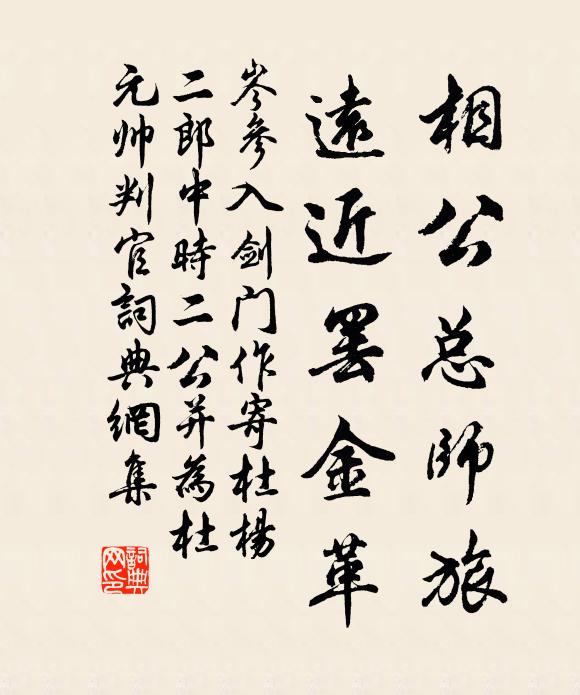 相公总師旅
遠近罢金革
岑參入剑门作寄杜楊
二郎中時二公并為杜
元帅判官詞典網集
詞典网印